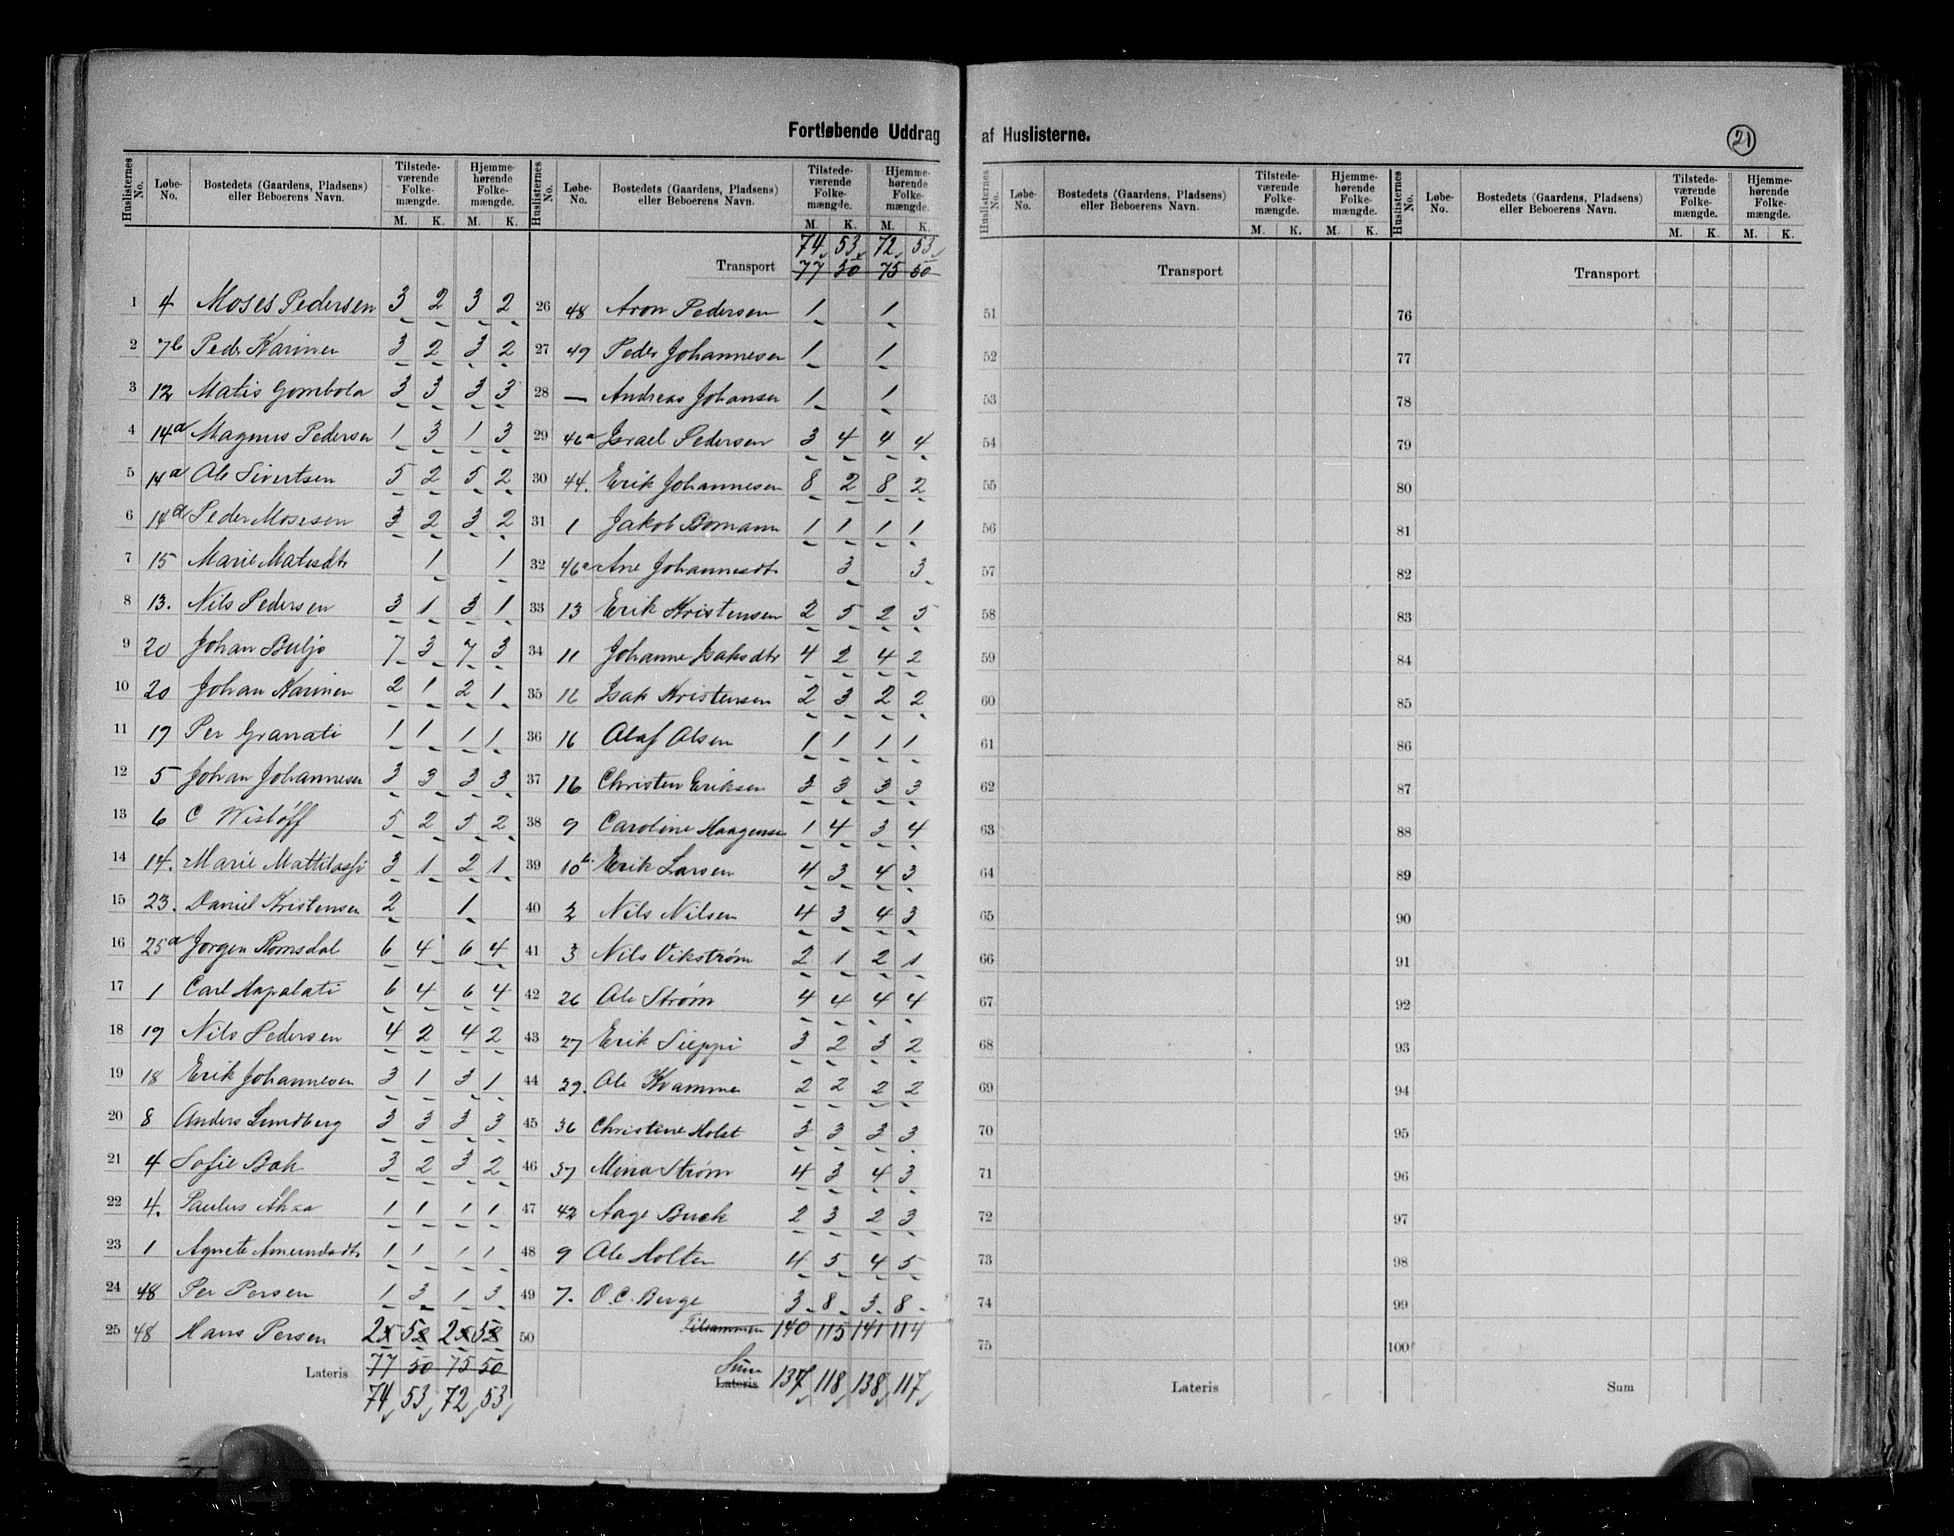 Fortløbende Uddrag af Huslisterne.
21
Huslisternes No. Løbe-No. Bostedets (Gaardens, Pladsens) eller Beboerens Navn. Tilstede-værende Folke-mængde. M. K. Hjemme-hørende Folke-mængde. M. K.
1 4 Moses Pedersen 3 2 3 2
2 7b Peder Karinen 3 2 3 2
3 12 Matis Gombola 3 3 3 3
4 14a Magnus Pedersen 1 3 1 3
5 14a Ole Sivertsen 5 2 5 2
6 14a Peder Mosesen 3 2 3 2
7 15 Marie Matisdtr 1 1
8 13. Nils Pedersen 3 1 3 1
9 20 Johan Buljo 7 3 7 3
10 20 Johan Karinen 2 1 2 1
11 19 Per Granati 1 1 1 1
12 5 Johan Johannesen 3 3 3 3
13 6 C Wisløff 5 2 5 2
14 14. Marie 3 1 2 1
15 23. Daniel Kristensen 2 1
16 25a Jørgen Romsdal 6 4 6 4
17 1 Carl Aapalati 6 4 6 4
18 19 Nils Pedersen 4 2 4 2
19 18 Erik Johannesen 3 1 3 1
20 8 Anders Lundberg 3 3 3 3
21 4 Sofie Bak 3 2 3 2
22 4. Paulus 1 1 1 1
23 1 Agnete Amundsdtr 1 1 1 1
24 48 Per Persen 1 3 1 3
25 48 Hans Persen 2 5 2 5
Lateris 77 50 75 50
74 53 72 53
Huslisternes No. Løbe-No. Bostedets (Gaardens, Pladsens) eller Beboerens Navn. Tilstede-værende Folke-mængde. M. K. Hjemme-hørende Folke-mængde. M. K.
74 53 72 53
Transport 77 50 75 50
26 48 Aron Pedersen 1 1
27 49 Peder Johannesen 1 1
28 — Andreas Johansen 1 1
29 46a Israel Pedersen 3 4 4 4
30 44. Erik Johannesen 8 2 8 2
31 1 Jakob Bomann 1 1 1 1
32 46a Ane Johannesdtr 3 3
33 13 Erik Kristensen 2 5 2 5
34 11 Johanne Isaksdtr 4 2 4 2
35 16 Isak Kristensen 2 3 2 2
36 16 Olaf Olsen 1 1 1 1
37 16 Christen Eriksen 3 3 3 3
38 9 Caroline Haagensen 1 4 3 4
39 10b. Erik Larsen 4 3 4 3
40 2 Nils Nilsen 4 3 4 3
41 3 Nils Vikstrøm 2 1 2 1
42 26 Ole Strøm 4 4 4 4
43 27 Erik Sieppi 3 2 3 2
44 29. Ole Kvammen 2 2 2 2
45 36 Christine Holst 3 3 3 3
46 37 Mina Strøm 4 3 4 3
47 42 Aage Buck 2 3 2 3
48 9 Ole Holten 4 5 4 5
49 7. O. C. Berge 3 8 3 8
50 Tilsammen 140 115 141 114
Sum
Lateris 137 118 138 117
Huslisternes No. Løbe-No. Bostedets (Gaardens, Pladsens) eller Beboerens Navn. Tilstede-værende Folke-mængde. M. K. Hjemme-hørende Folke-mængde. M. K.
Transport
51
52
53
54
55
56
57
58
59
60
61
62
63
64
65
66
67
68
69
70
71
72
73
74
75
Lateris
Huslisternes No. Løbe-No. Bostedets (Gaardens, Pladsens) eller Beboerens Navn. Tilstede-værende Folke-mængde. M. K. Hjemme-hørende Folke-mængde. M. K.
Transport
76
77
78
79
80
81
82
83
84
85
86
87
88
89
90
91
92
93
94
95
96
97
98
99
100
Sum